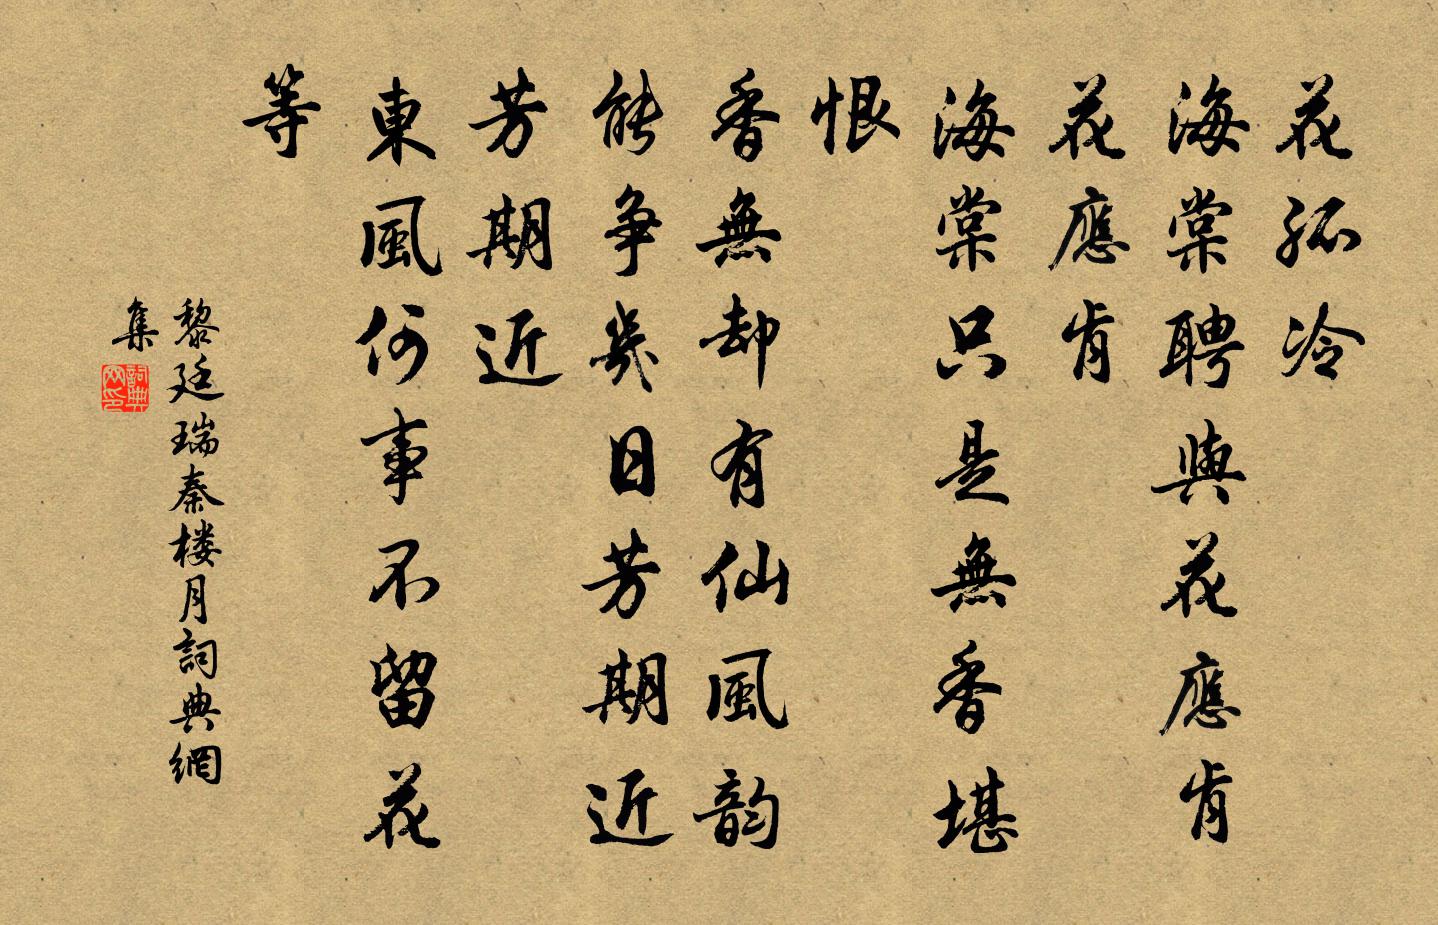 花孤冷
海棠聘與花應肯
花應肯
海棠只是無香堪
恨
香無却有仙風韵
能争幾日芳期近
芳期近
東風何事不留花
等
黎廷瑞秦楼月詞典網
集
詞典網印